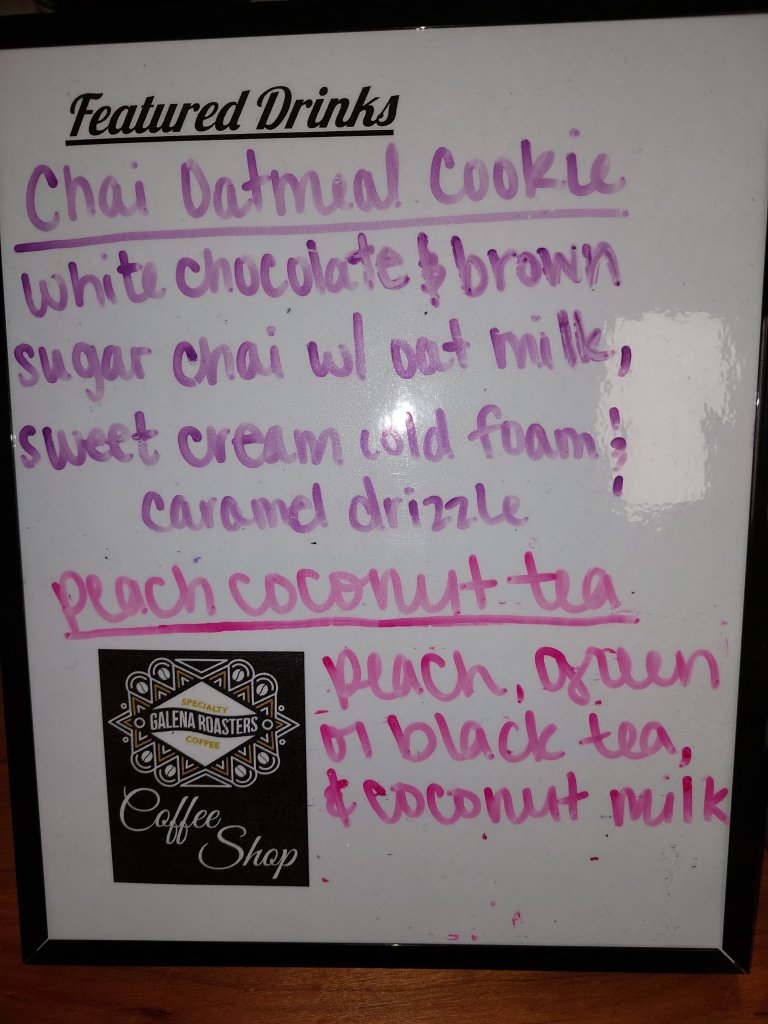 Featured Drinks
Chai Oatmeal Cookie
white chocolate & brown
sugar chai w/ oat milk,
sweet cream cold foam &
caramel drizzle
peach coconut tea
peach, green
or black tea,
& coconut milk
SPECIALTY
GALENA ROASTERS
COFFEE
Coffee
Shop